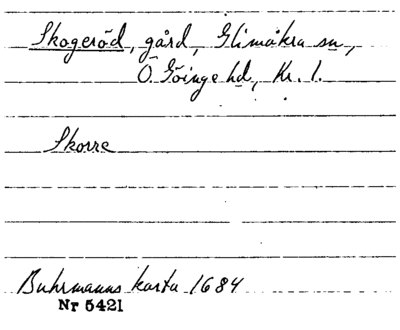 Skogeröd, gård, Glimåkra sn,
Ö. Göinge hd, Kr. l.
Skorre
Buhrmanns karta 1684
Nr 5421